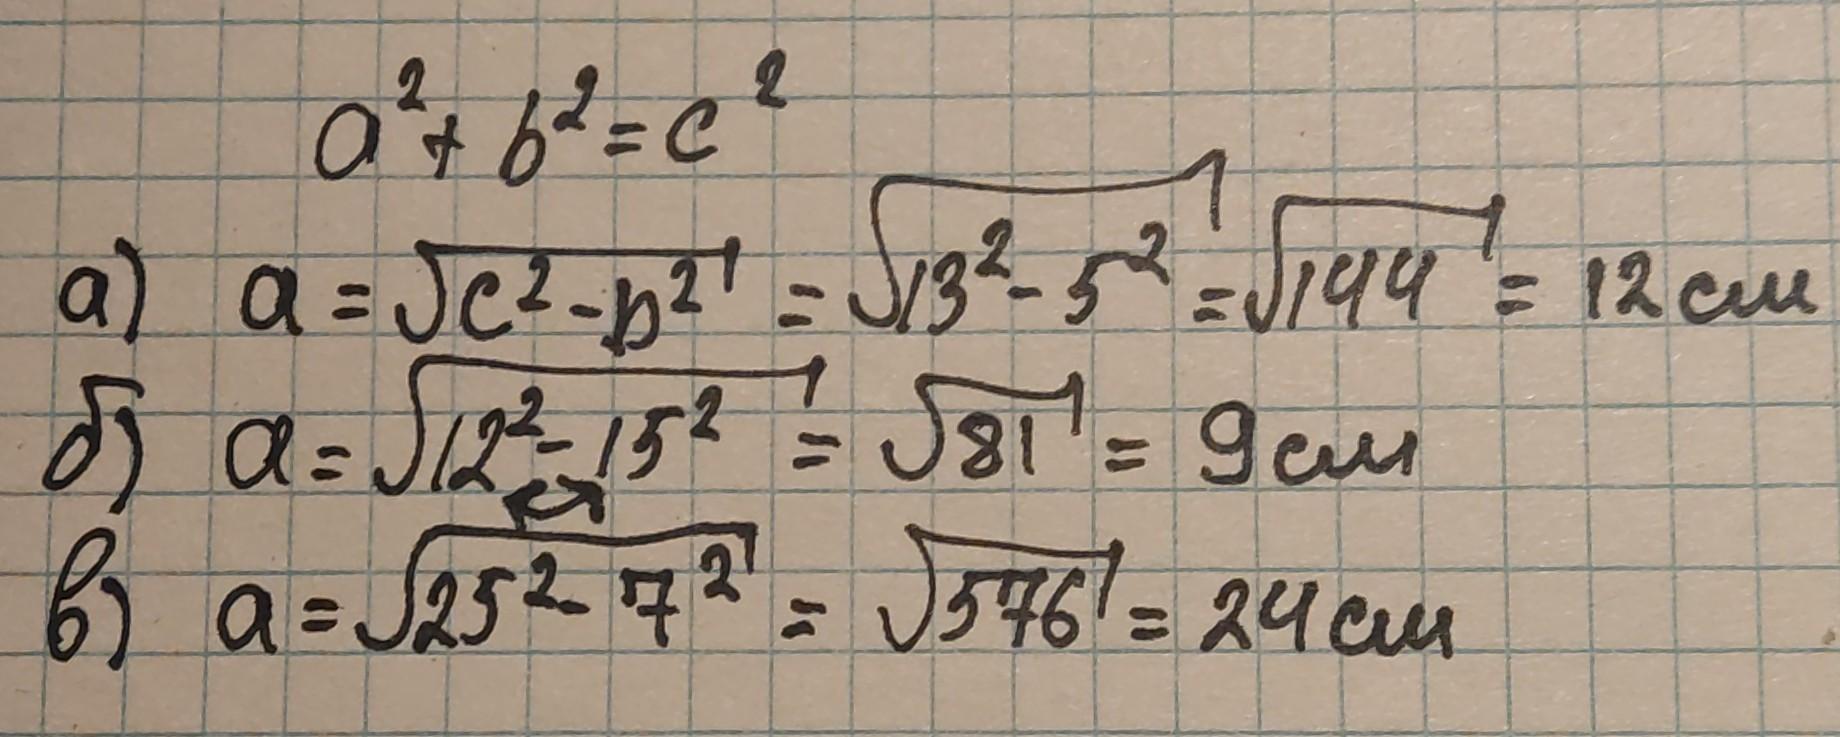 a² + b² = c²
а) a = √c² - b² = √13² - 5² = √144 = 12 см
б) a = √12² - 15² = √81 = 9 см
↔
в) a = √25² - 7² = √576 = 24 см